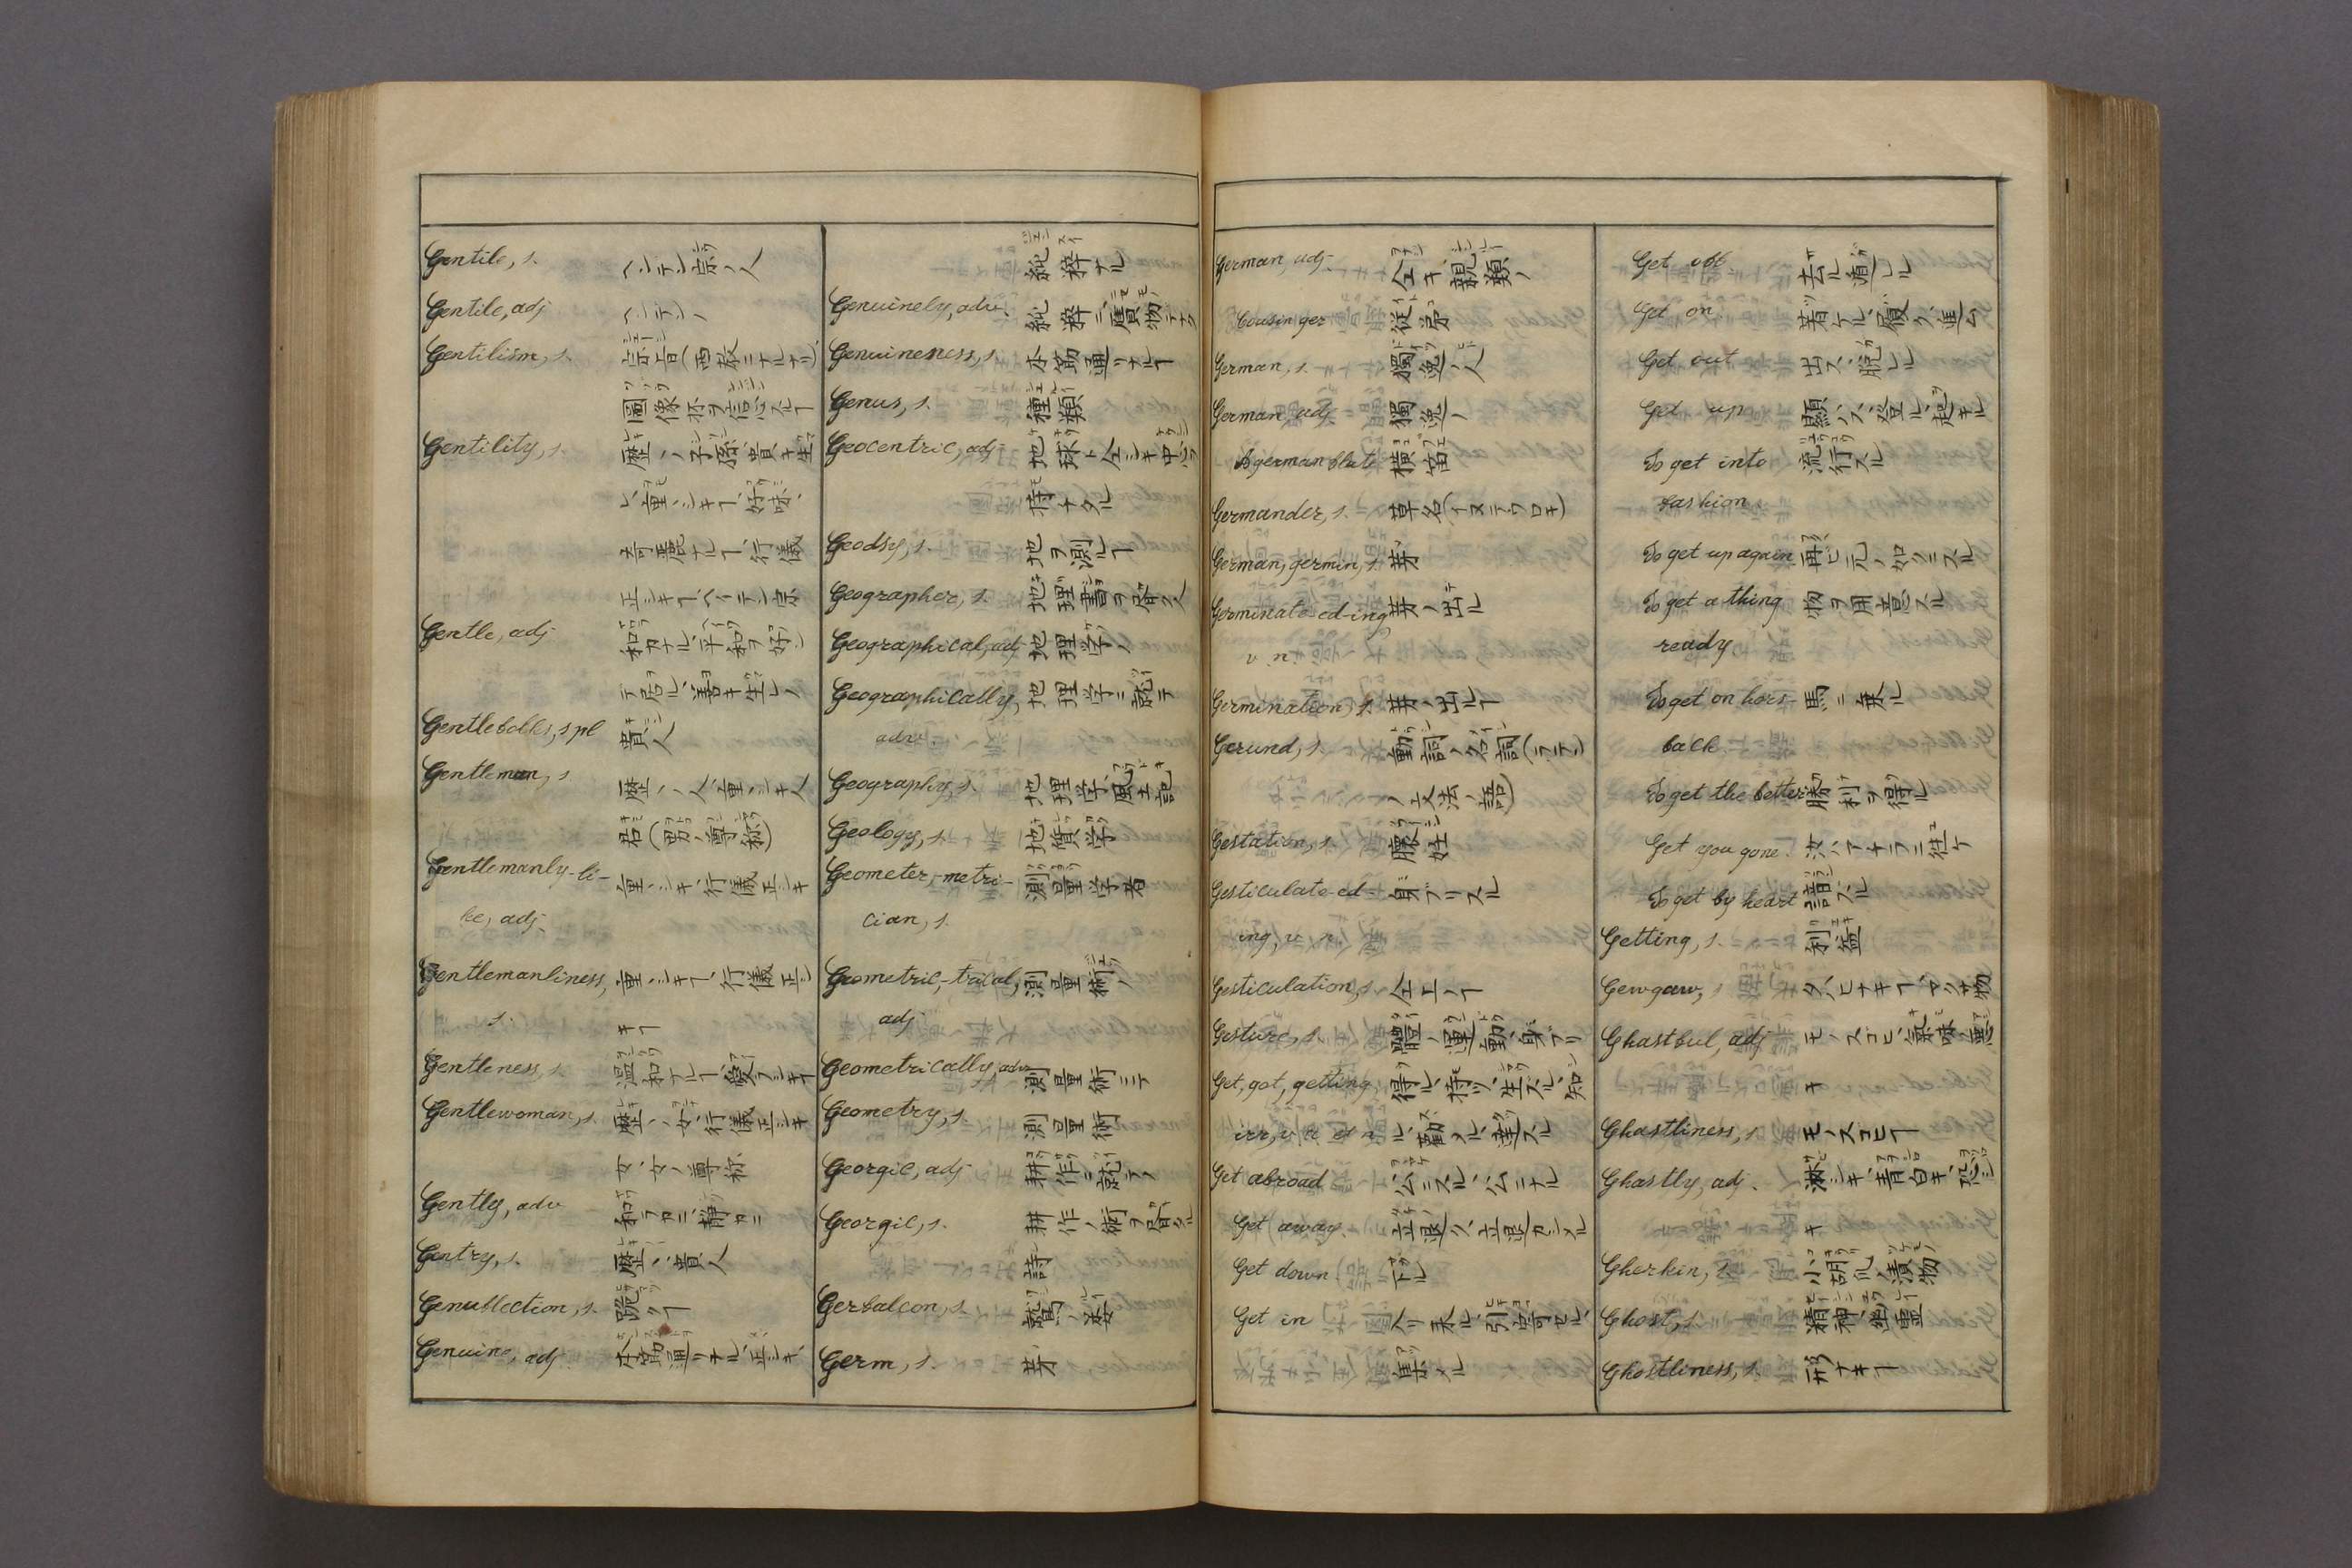 Gentile, s. ヘーデン宗ノ人
Gentile, adj ヘーデンノ
Gentilism, s. 宗旨(西教ニナルナリ)
圖像杯ヲ信スルヿ
Gentility, s. 歴、ノ子孫、貴キ生
レ、重、シキヿ、好味、
奇麗ナルヿ、行儀
正シキヿ、ヘーデン宗
Gentle, adj 和カナル、平和ヲ好ン
デ居ル、善キ生レノ
Gentlefolks, s pl 貴人
Gentleman, s 歴、ノ人、重、シキ人
君(男ノ尊称)
Gentlemanly-li- 重、シキ、行儀正シキ
ke, adj.
Gentlemanliness, 重、シキヿ、行儀正シ
s. キヿ
Gentleness, s. 温和ナルヿ、愛ラシキヿ
Gentlewoman, s. 歴、ノ女、行儀正シキ
女、女ノ尊称
Gently, adv 和ラカニ、静カニ
Gentry, s. 歴、、貴人
Genuflection, s. 跪クヿ
Genuine, adj 本筋通リナル、正シキ、
純粋ナル
Genuinely, adv. 純粋ニ、贋物デナク
Genuineness, s. 本筋通リナルヿ
Genus, s. 種類
Geocentric, adj. 地球ト仝シキ中心ヲ
持ナタル
Geodsy, s. 地ヲ測ルヿ
Geographer, s. 地理書ヲ
Geographical, adj 地理学ノ
Geographically, 地理学ニ就テ
adv.
Geography, s. 地理学、風土記
Geology, s. 地質学
Geometer,-metri- 測量学者
cian, s.
Geometric,-trical, 測量術ノ
adj
Geometrically, adv 測量術ニテ
Geometry, s. 測量術
Georgic, adj 耕作ニ就テノ
Georgic, s. 耕作ノ術ヲ
詩
Gerfalcon, s. 鷲ノ類
Germ, s. 芽
German, adj. 仝キ、親類ノ
Cousin ger 従弟
German, s. 獨逸ノ人
German, adj 獨逸ノ
A german flute 横笛
Germander, s. 草名(イヌニワロキ)
German, germin, s. 芽
Germinate-ed-ing 芽ノ出ル
v. n.
Germination, s. 芽ノ出ルヿ
Gerund, s. 動詞ノ名詞(ラテン
ノ文法ノ語)
Gestation, s. 懐妊
Gesticulate-ed- 身ブリスル
ing, v. n.
Gesticulation, s. 仝上ノヿ
Gesture, s. 體ノ運動、身ブリ
Get, got, getting, 得ル、持ツ、生スル、知
irr, v. a et n ル、勸メル、達スル
Get abroad 公ニスル、公ニナル
Get away. 立退ク、立退カシメル
Get down 下ル
Get in 入リ来ル、引寄セル、
集メル
Get off 去ル、遁レル
Get on 着ケル、履ク、進ム
Get out 出ス、脱レル
Get up 顯ハス、登ル、起キル
To get into 流行スル
fashion
To get up again 再ヒ元ノ如クニスル
To get a thing 物ヲ用意スル
ready
To get on hors- 馬ニ乗ル
back
To get the better 勝利ヲ得ル
Get you gone. 汝ハアチラニ往ケ
To get by heart 諳スル
Getting, s. 利益
Gewgaw, s タハヒナキヿ、ツマラヌ物
Ghastful, adj モノスゴヒ、氣味悪
キ
Ghastliness, s. モノスゴヒヿ
Ghastly, adj. 淋シキ、青白キ、恐シ
キ
Gherkin, s. 小胡瓜ノ漬物
Ghost, s. 精神、幽霊
Ghostliness, s. 形ナキヿ